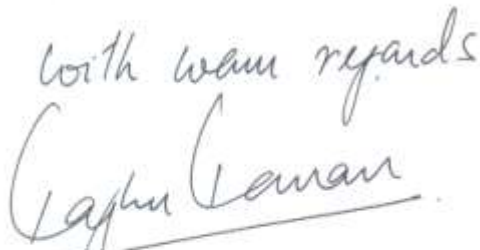 with warm regards
Raghu Raman